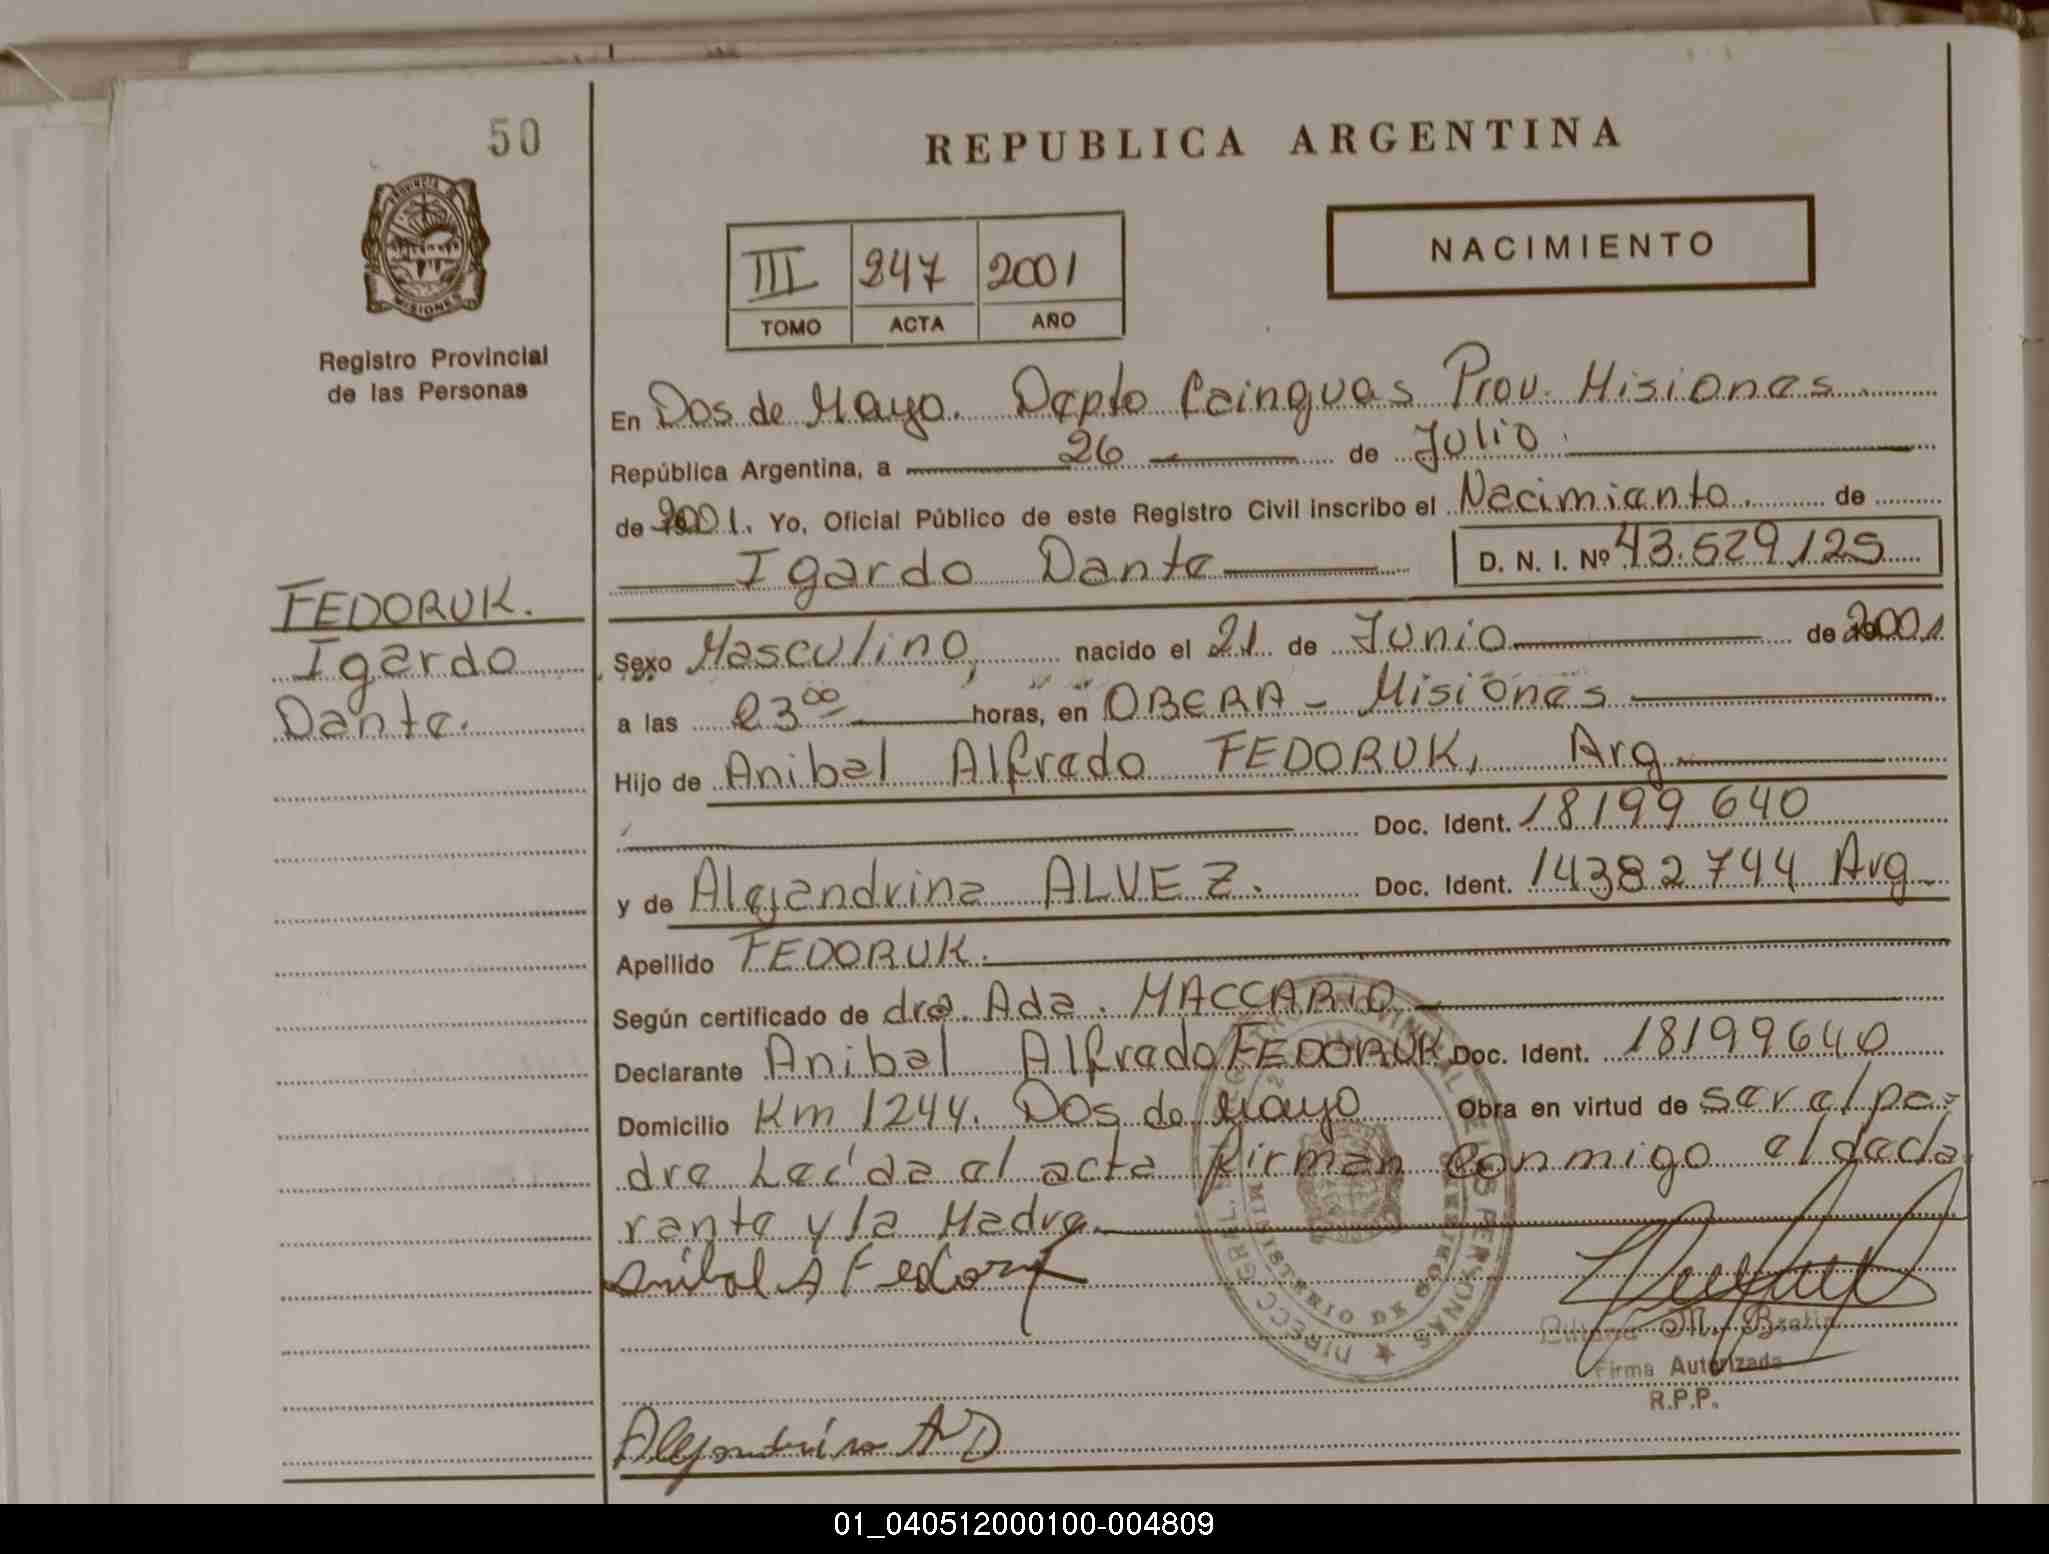 50
REPUBLICA ARGENTINA
PROVINCIA DE
MISIONES
NACIMIENTO
III 247 2001
TOMO ACTA AÑO
Registro Provincial
de las Personas
En Dos de Mayo. Depto Cainguas Prov. Misiones
República Argentina, a 26 de Julio
de 2001. Yo, Oficial Público de este Registro Civil inscribo el Nacimiento. de
Igardo Dante D. N. I. Nº 43.529.125
FEDORUK.
Igardo
Dante.
Sexo Masculino, nacido el 21 de Junio de 2001
a las 23⁰⁰ horas, en OBERA - Misiones
Hijo de Anibal Alfredo FEDORUK, Arg
Doc. Ident. 18199640
y de Alejandrina ALVEZ. Doc. Ident. 14382744 Arg
Apellido FEDORUK.
Según certificado de dra. Ada. MACCARIO
Declarante Anibal Alfredo FEDORUK Doc. Ident. 18199640
Domicilio Km 1244. Dos de Mayo Obra en virtud de ser el pa=
dre Leída el acta firman conmigo el decla
rante y la Madre
Anibal A Fedoruk
MINISTERIO DE GOBIERNO
M. 
Firma Autorizada
R.P.P.
Alejandrina
01_040512000100-004809